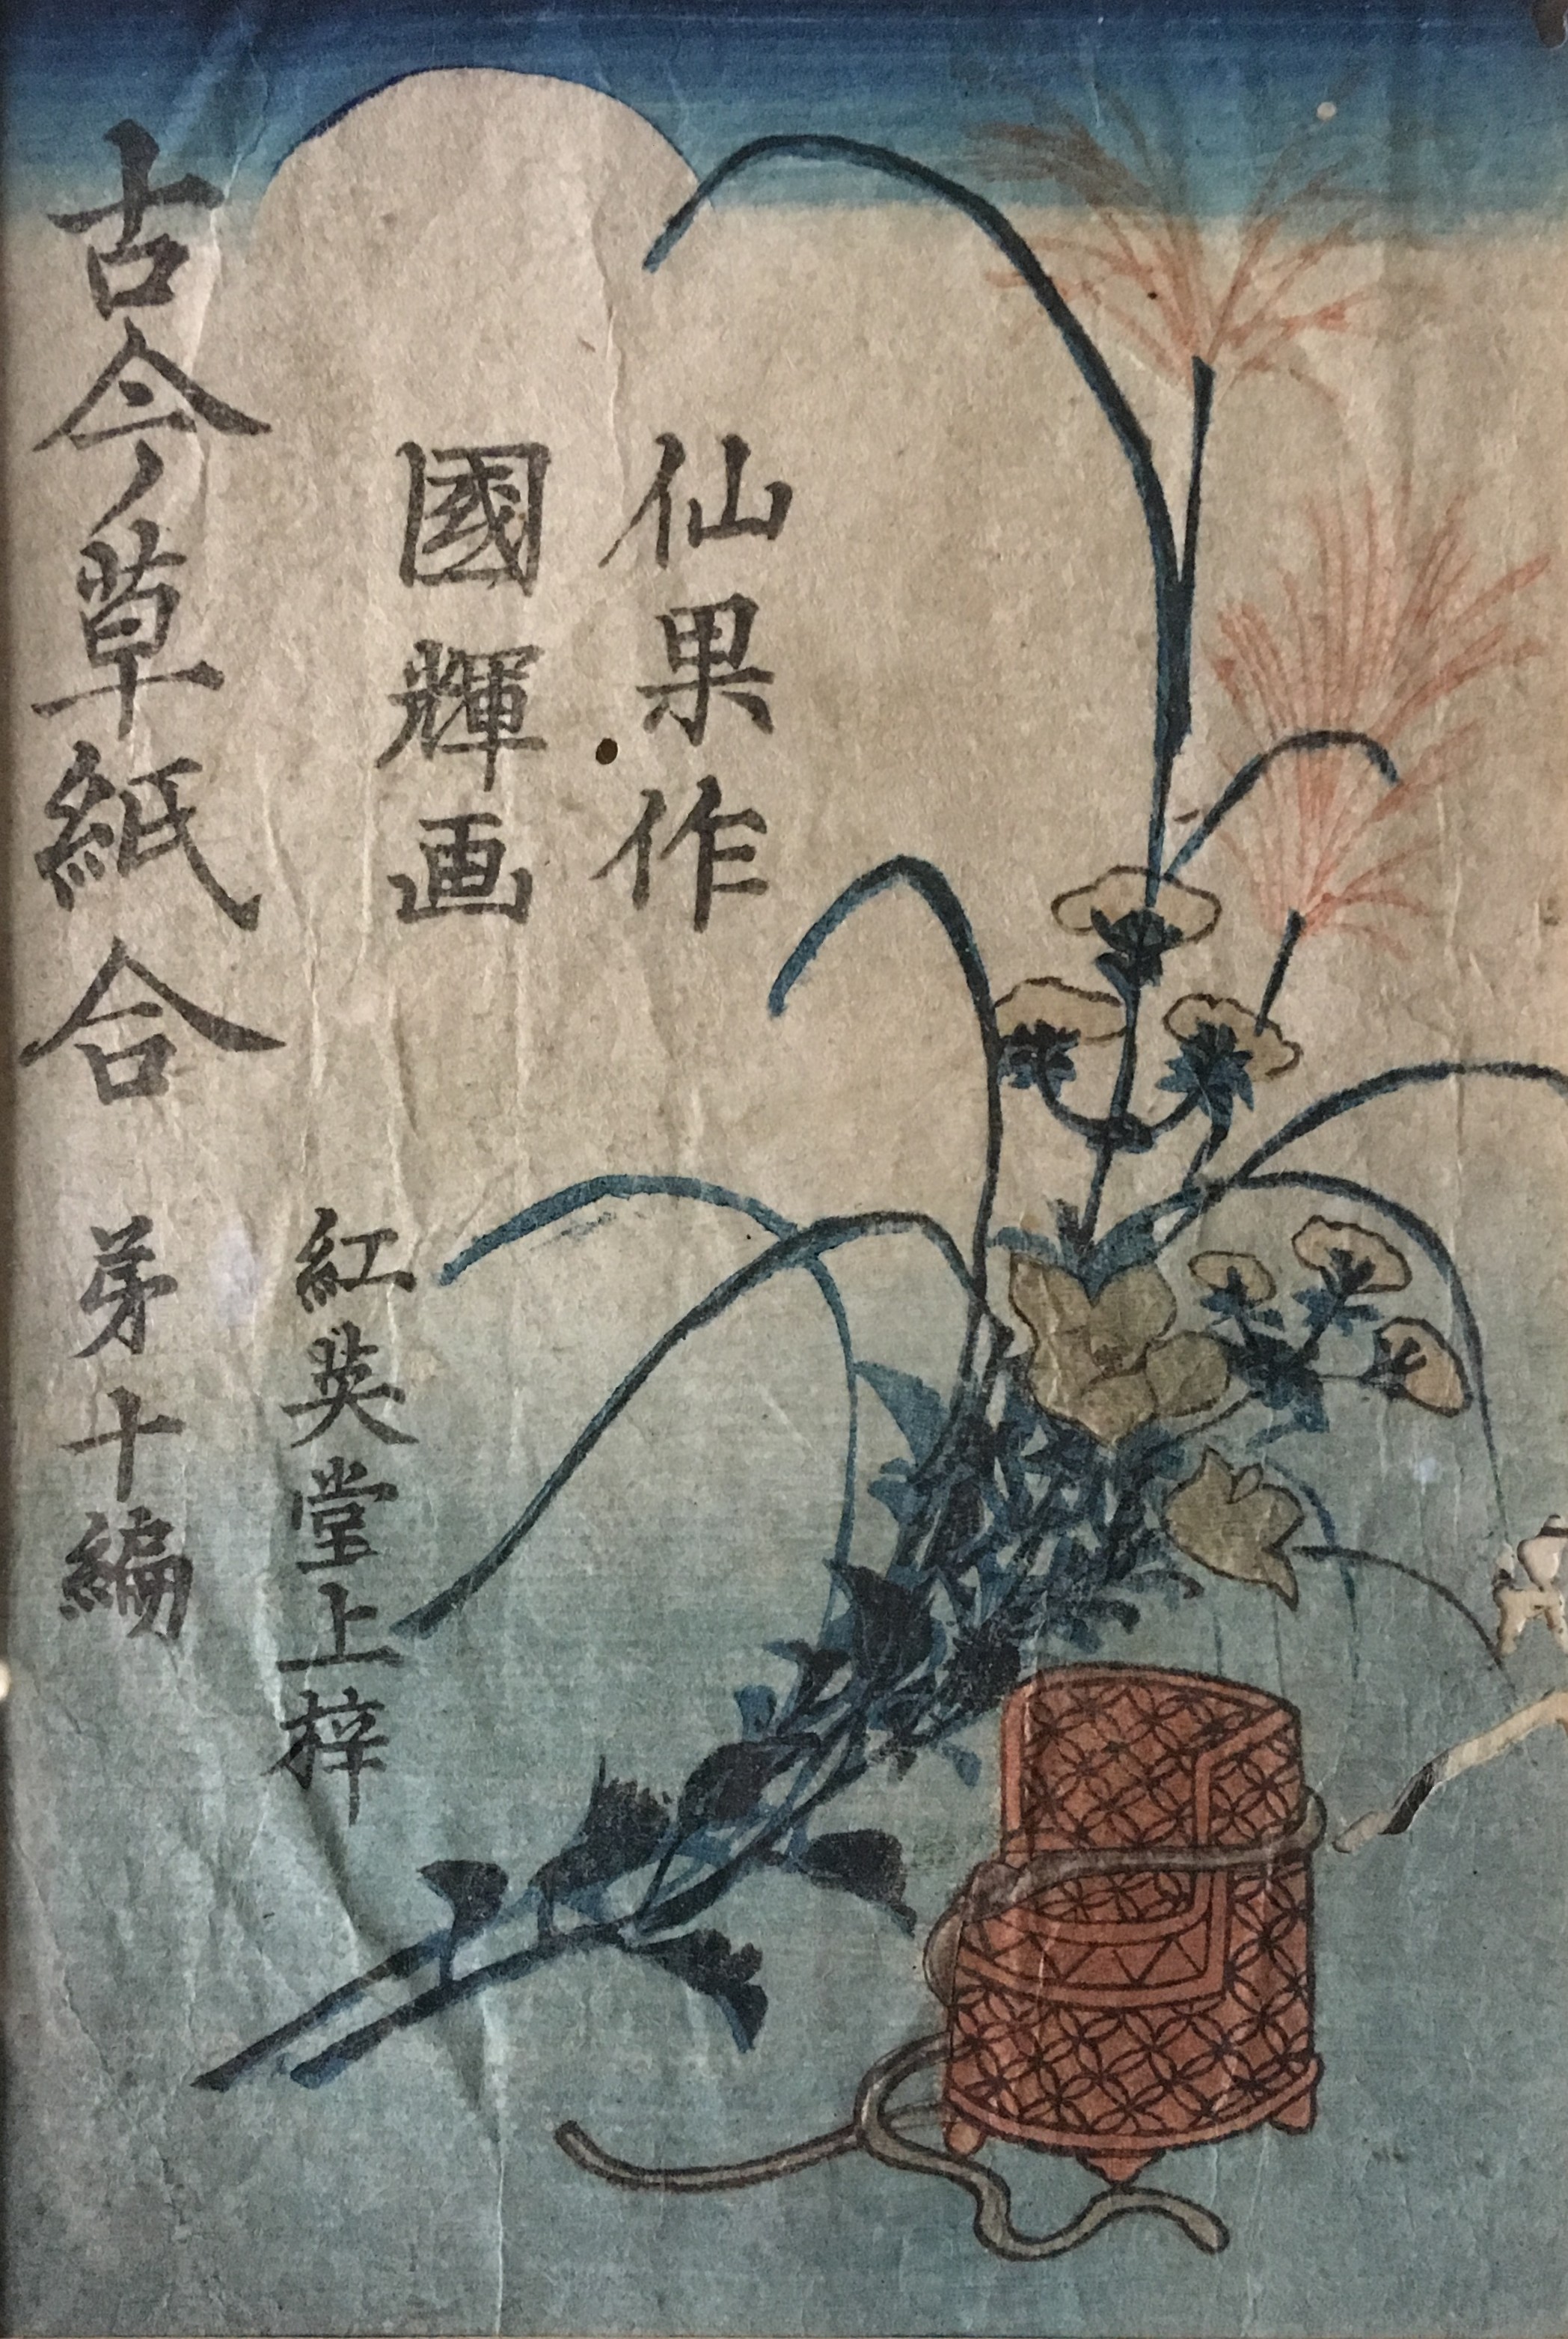 仙果作
國輝画
紅英堂上梓
古今ノ草紙合
苐十編